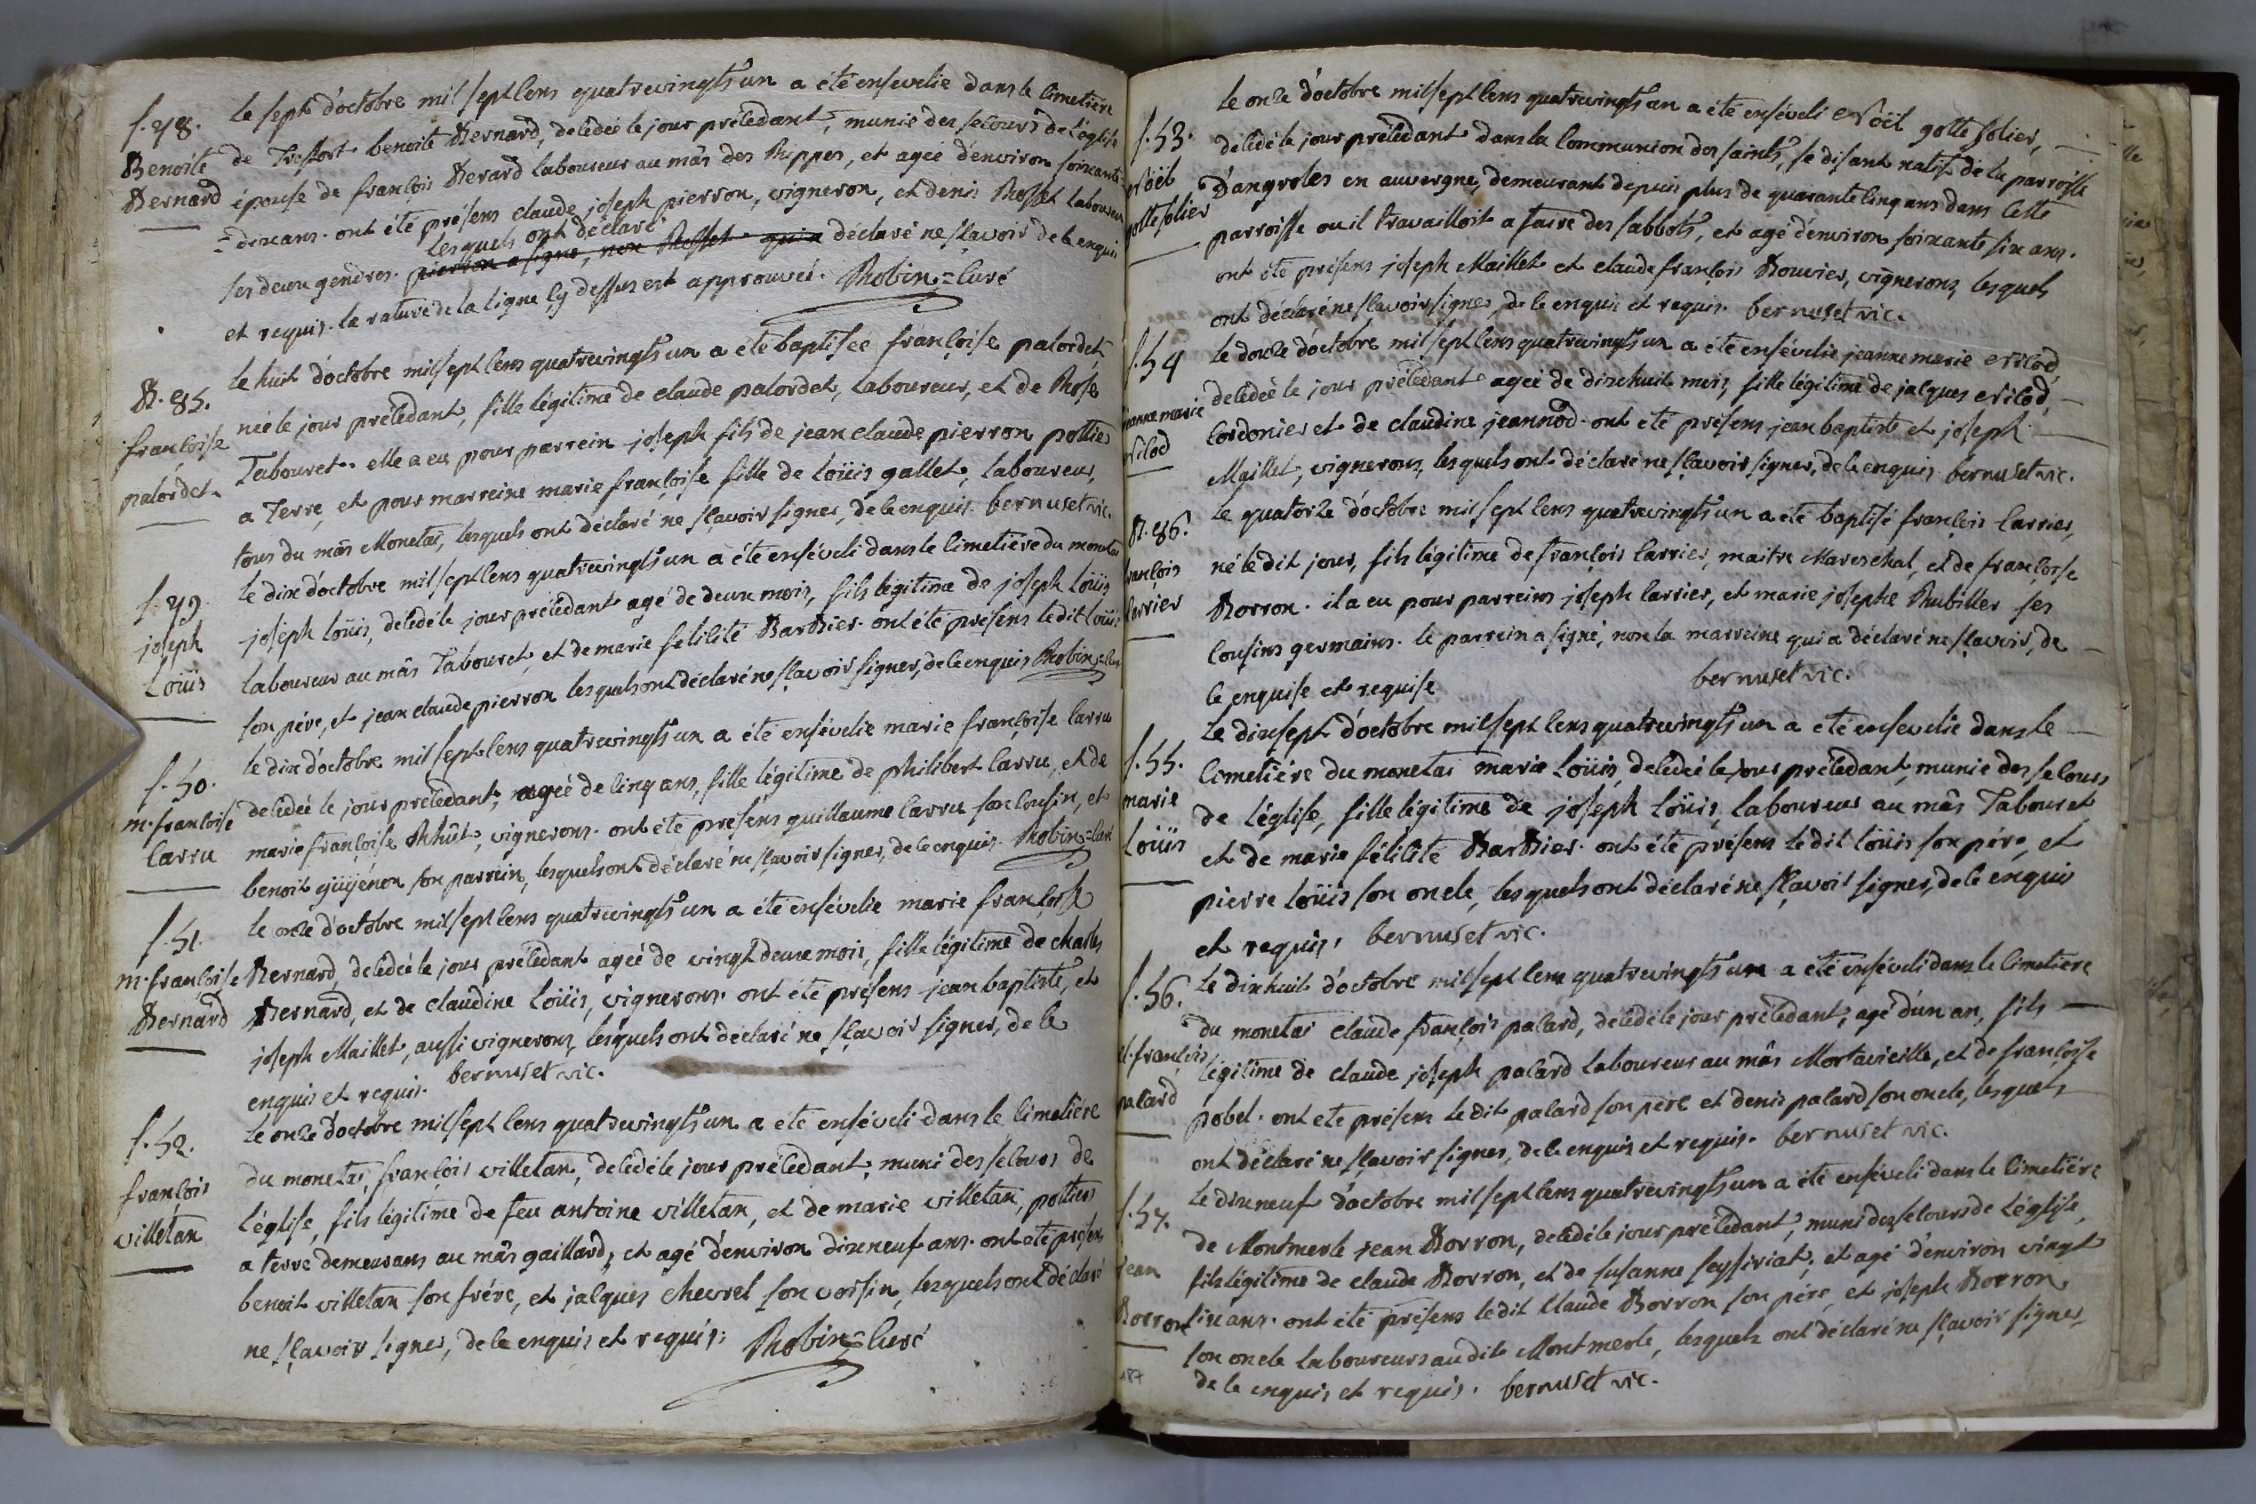 s. 48.
Benoite
Bernard
le sept d'octobre mil sept cens quatrevingts un a été ensevelie dans le cimetiere
de Treffort benoite Bernard, decedée le jour précedant, munie des secours de l'église
épouse de françois Berard laboureur au mâs des Rippes, et agée d'environ soixante
= dix ans. ont été présens claude joseph pierron, vigneron, et denis Rosset laboureur
lesquels ont déclaré
ses deux gendres. pierron a signé, non Rosset qui a déclaré ne sçavoir de ce enquis
et requis. la rature de la ligne cy dessus est approuvée. Robin = curé
B. 85.
françoise
palordet
le huit d'octobre mil sept cens quatrevingts un a été baptisée françoise palordet
née le jour précedant, fille légitime de claude palordet, laboureur, et de Rose
Tabouret. elle a eu pour parrein joseph fils de jean claude pierron pottier
a terre, et pour marreine marie françoise fille de Loüis gallet, laboureur,
tous du mâs Monetai, lesquels ont déclaré ne sçavoir signer, de ce enquis. bernuset vic.
s. 49.
joseph
Loüis
le dix d'octobre mil sept cens quatrevingts un a été enséveli dans le cimetiére du monetai
joseph Loüis, decedé le jour précedant agé de deux mois, fils légitime de joseph Loüis
laboureur au mâs Tabouret, et de marie felicité Barbier. ont été présens ledit Loüis
son pére, et jean claude pierron lesquels ont déclaré ne sçavoir signer, de ce enquis Robin = curé
s. 50.
m. françoise
Carru
le dix d'octobre mil sept cens quatrevingts un a été ensévelie marie françoise Carru
decedée le jour précedant, agée de cinq ans, fille légitime de philibert Carru, et de
marie françoise Rhût, vignerons. ont été présens guillaume Carru son cousin, et
benoit güyénon son parrein, lesquels ont déclaré ne sçavoir signer, de ce enquis. Robin = curé
s. 51.
m. françoise
Bernard
le onze d'octobre mil sept cens quatrevingts un a été ensévelie marie françoise
Bernard, decedée le jour précedant agée de vingt deux mois, fille légitime de charles
Bernard, et de claudine Loüis, vignerons. ont été présens jean baptiste, et
joseph Maillet, aussi vignerons, lesquels ont déclaré ne sçavoir signer, de ce
enquis et requis. bernuset vic.
s. 52.
françois
villetan
le onze d'octobre mil sept cens quatrevingts un a été enséveli dans le cimetiére
du monetai, françois villetan, decedé le jour précedant, muni des secours de
l'église, fils légitime de feu antoine villetan, et de marie villetan, pottiers
a terre demeurans au mâs gaillard, et agé d'environ dix neuf ans. ont été présens
benoit villetan son frére, et jacques chevrel son voisin, lesquels ont déclaré
ne sçavoir signer, de ce enquis et requis. Robin = curé
s. 53.
Noël
gottesolier
le onze d'octobre mil sept cens quatrevingts un a été enséveli Noël gottesolier,
décédé le jour précedant dans la communion des saints, se disant natif de la parroisse
d'angroles en auvergne, demeurant depuis plus de quarante cinq ans dans cette
parroisse ou il travailloit a faire des sabbots, et agé d'environ soixante six ans.
ont été présens joseph Maillet et claude françois Bouvier, vignerons, lesquels
ont déclaré ne sçavoir signer, de ce enquis et requis. bernuset vic.
s. 54
jeanne marie
Nicod
le douze d'octobre mil sept cens quatrevingts un a été ensévelie jeanne marie Nicod,
decedée le jour précedant agée de dix huit mois, fille légitime de jacques Nicod,
cordonier et de claudine jeannod. ont été présens jean baptiste et joseph
Maillet, vignerons, lesquels ont déclaré ne sçavoir signer, de ce enquis. bernuset vic.
B. 86.
françois
Carrier
le quatorze d'octobre mil sept cens quatrevingts un a été baptisé françois Carrier,
né le dit jour, fils légitime de françois Carrier, maitre Mareschal, et de françoise
Borron. il a eu pour parreins joseph Carrier, et marie josephe Rubiller ses
cousins germains. le parrein a signé, non la marreine qui a déclaré ne sçavoir, de
ce enquise et requise bernuset vic.
s. 55.
marie
Loüis
le dix sept d'octobre mil sept cens quatrevingts un a été ensevelie dans le
cimetiére du monetai marie Loüis, decedée le jour précedant, munie des secours
de l'église, fille légitime de joseph Loüis, laboureur au mâs Tabouret
et de marie félicité Barbier. ont été présens le dit Loüis son pére, et
pierre Loüis son oncle, lesquels ont déclaré ne sçavoir signer, de ce enquis
et requis. bernuset vic.
s. 56.
cl. françois
palard
le dix huit d'octobre mil sept cens quatrevingts un a été enséveli dans le cimetiére
du monetai claude françois palard, décédé le jour précedant, agé d'un an, fils
légitime de claude joseph palard laboureur au mâs Mortavieille, et de françoise
pobel. ont été présens le dit palard son pére et denis palard son oncle, lesquels
ont déclaré ne sçavoir signer, de ce enquis et requis. bernuset vic.
s. 57.
jean
Borron
le dix neuf d'octobre mil sept cens quatrevingts un a été enséveli dans le cimetiére
de Montmerle jean Borron, decedé le jour précedant, muni des secours de l'église,
fils légitime de claude Borron, et de susanne seyssiriat, et agé d'environ vingt
six ans. ont été présens le dit Claude Borron son pére, et joseph Borron
son oncle laboureurs au dit Montmerle, lesquels ont déclaré ne sçavoir signer,
de ce enquis et requis. bernuset vic.
187